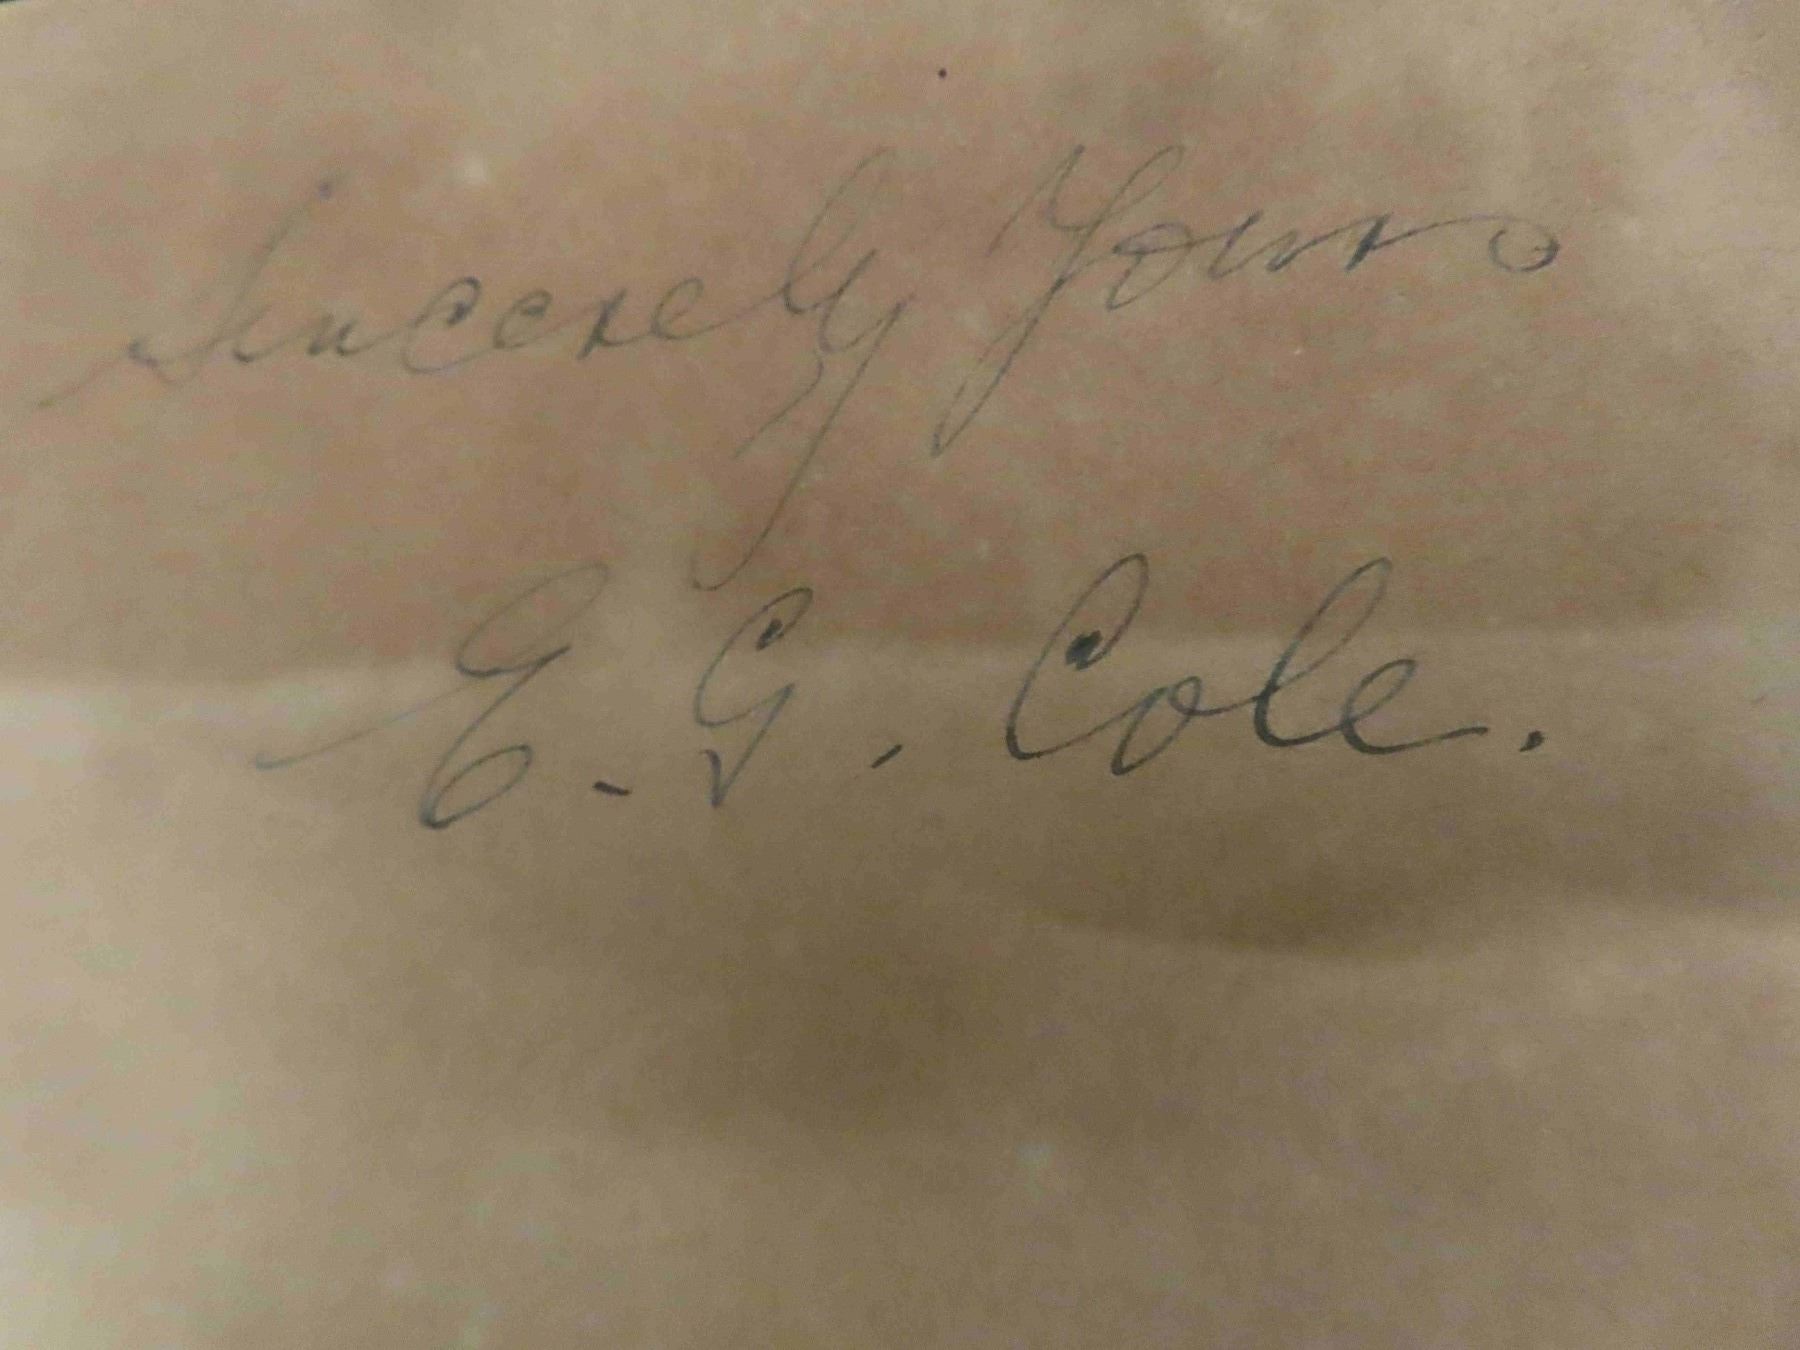 Sincerely Yours
E. G. Cole.